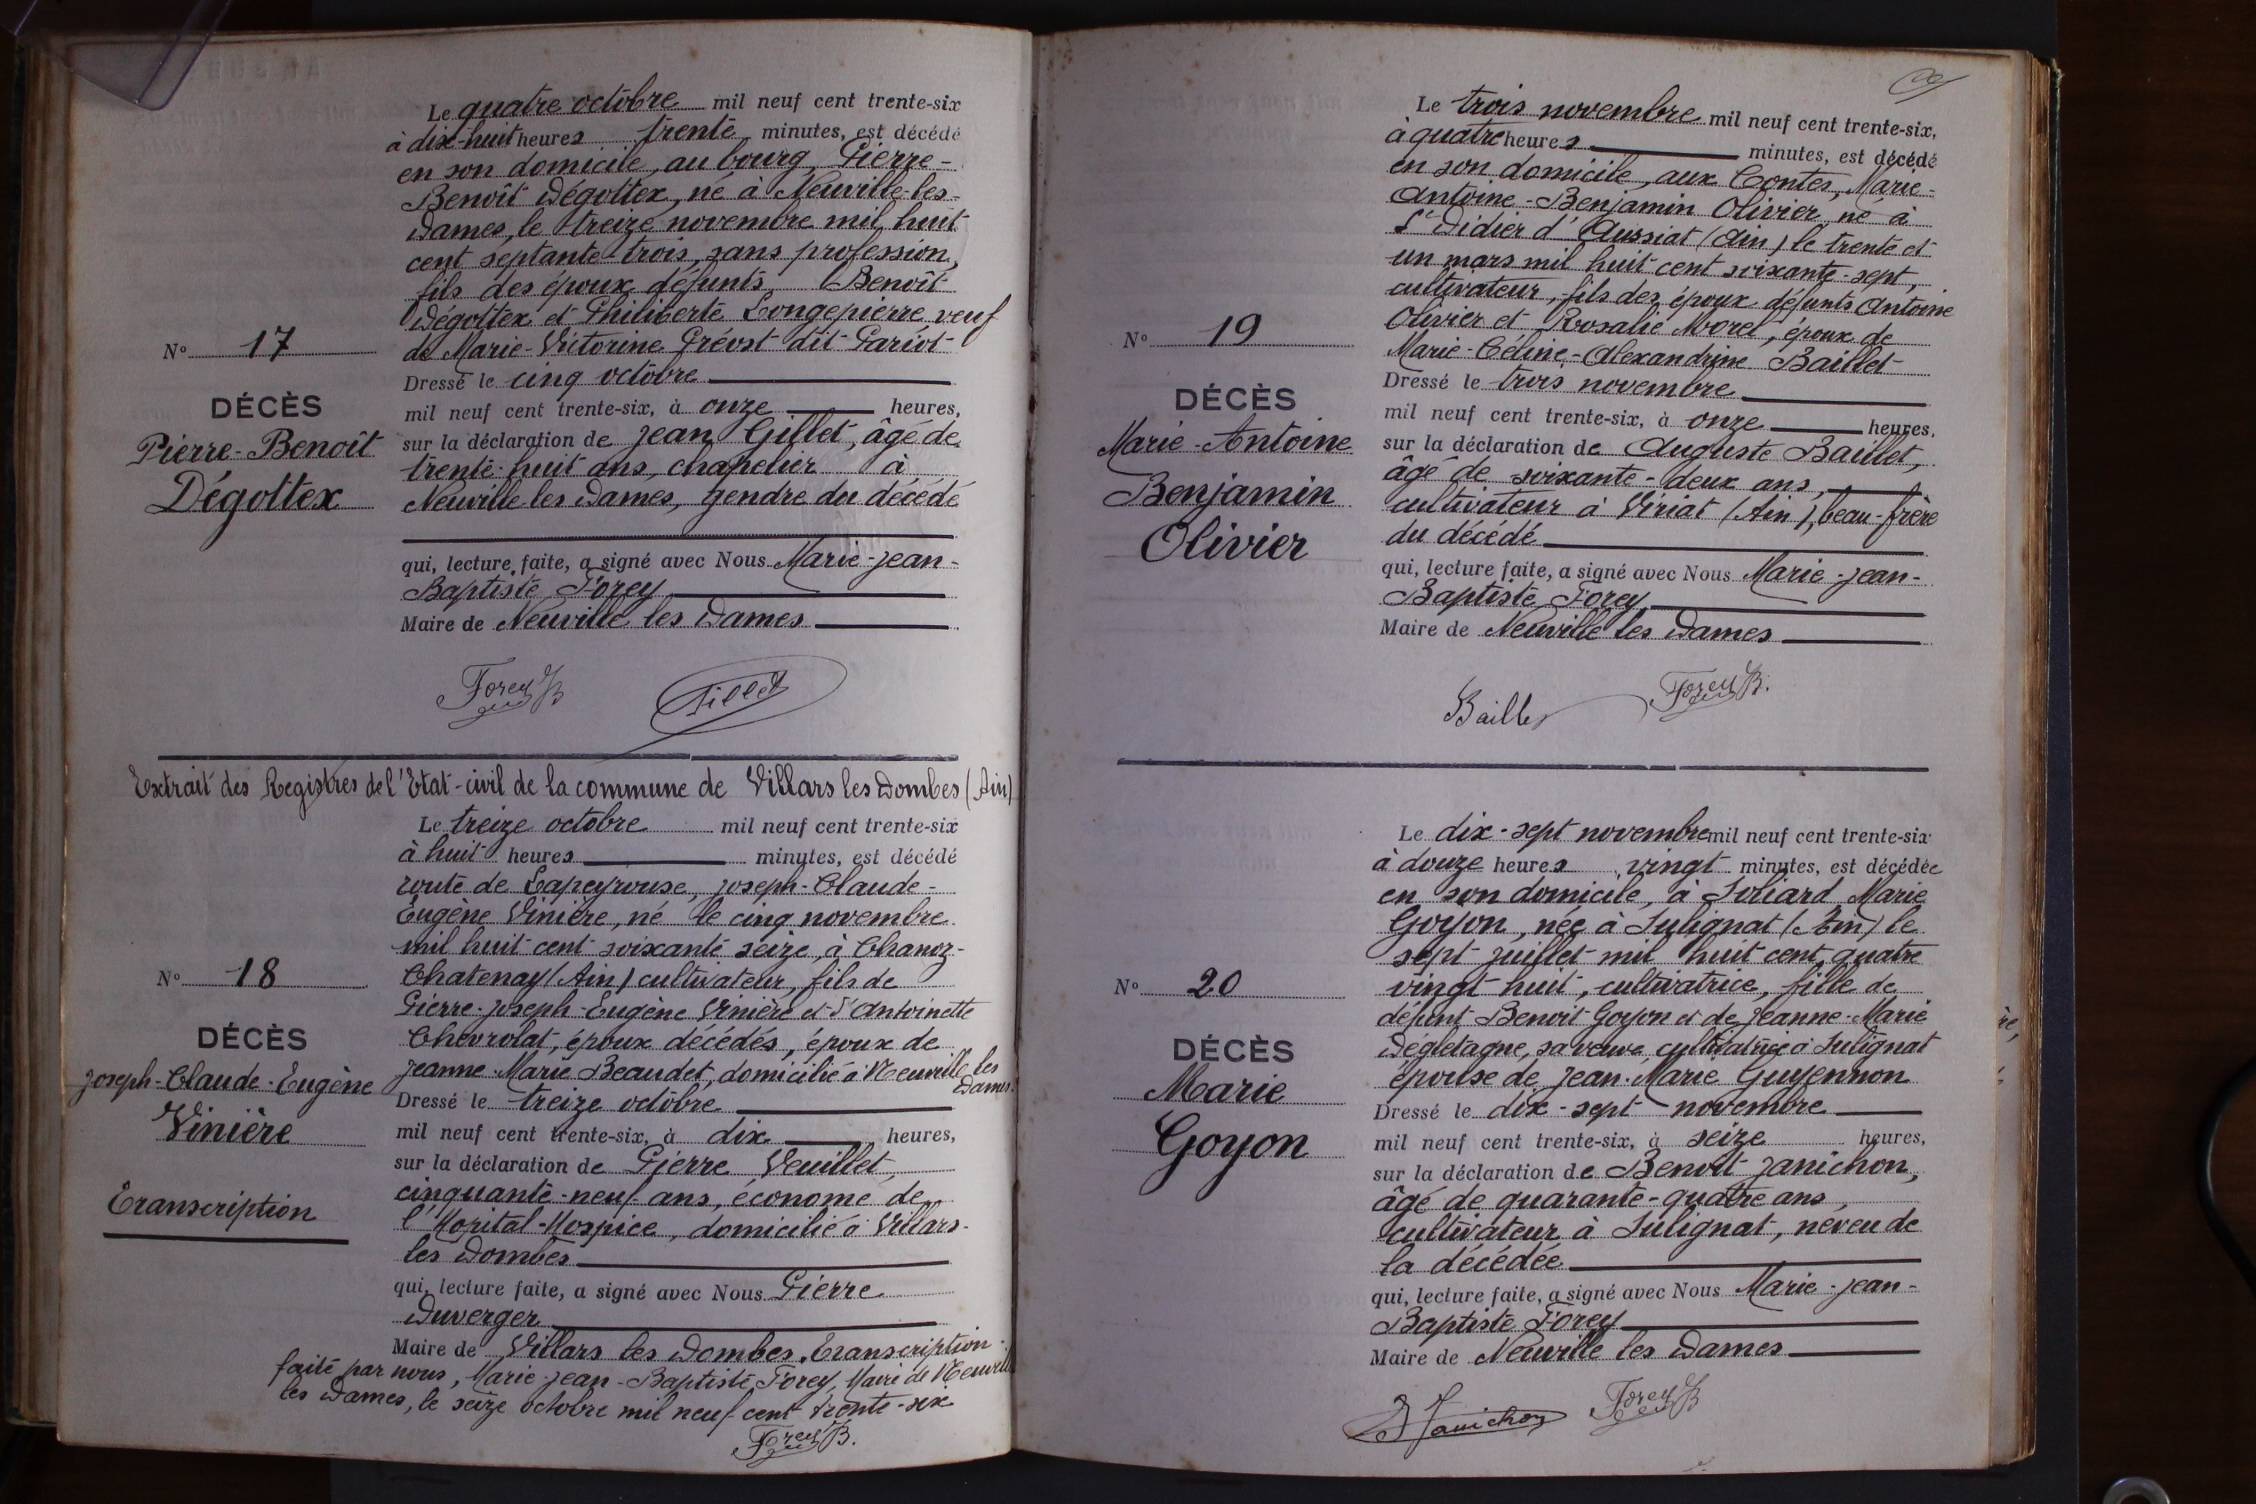 Le quatre octobre mil neuf cent trente-six
à dix-huit heures trente minutes, est décédé
en son domicile, au bourg, Pierre-
Benoît Dégottex, né à Neuville-les-
Dames, le treize novembre mil huit
cent septante trois, sans profession,
fils des époux défunts Benoît
Dégottex et Philiberte Longepierre, veuf
de Marie-Victorine Prévost dit Pariot
Dressé le cinq octobre
mil neuf cent trente-six, à onze heures,
sur la déclaration de Jean Gillet, âgé de
trente-huit ans, chapelier à
Neuville les Dames, gendre du décédé
qui, lecture faite, a signé avec Nous Marie-Jean-
Baptiste Forey
Maire de Neuville les Dames
N° 17
DÉCÈS
Pierre-Benoît
Dégottex
Forey B
Gillet
Extrait des Registres de l'Etat-civil de la commune de Villars les Dombes (Ain)
Le treize octobre mil neuf cent trente-six
à huit heures minutes, est décédé
route de Lapeyrouse, Joseph-Claude-
Eugène Vinière, né le cinq novembre
mil huit cent soixante seize, à Chanoz-
Chatenay (Ain) cultivateur, fils de
Pierre-Joseph-Eugène Vinière et d'Antoinette
Chevrolat, époux décédés, époux de
Jeanne-Marie Beaudet, domicilié à Neuville les
Dames.
Dressé le treize octobre
mil neuf cent trente-six, à dix heures,
sur la déclaration de Pierre Veuillet,
cinquante-neuf ans, économe de
l'Hopital-Hospice, domicilié à Villars-
les Dombes
qui, lecture faite, a signé avec Nous Pierre
Duverger
Maire de Villars les Dombes. Transcription
faite par nous, Marie-Jean-Baptiste Forey, Maire de Neuville
les Dames, le seize octobre mil neuf cent trente-six
N° 18
DÉCÈS
Joseph-Claude-Eugène
Vinière
Transcription
Forey B.
Le trois novembre mil neuf cent trente-six,
à quatre heures minutes, est décédé
en son domicile, aux Contes, Marie-
Antoine-Benjamin Olivier, né à
St Didier d'Aussiat (Ain) le trente et
un mars mil huit cent soixante-sept,
cultivateur, fils des époux défunts Antoine
Olivier et Rosalie Morel, époux de
Marie-Céline-Alexandrine Baillet
Dressé le trois novembre
mil neuf cent trente-six, à onze heures,
sur la déclaration de Auguste Baillet,
âgé de soixante-deux ans,
cultivateur à Viriat (Ain), beau-frère
du décédé
qui, lecture faite, a signé avec Nous Marie-Jean-
Baptiste Forey
Maire de Neuville les Dames
N° 19
DÉCÈS
Marie-Antoine
Benjamin
Olivier
Baillet
Forey B.
Le dix-sept novembre mil neuf cent trente-six
à douze heures vingt minutes, est décédée
en son domicile, à Soliard Marie
Goyon, née à Sulignat (Ain) le
sept juillet mil huit cent quatre
vingt huit, cultivatrice, fille de
défunt Benoit Goyon et de Jeanne-Marie
Dégletagne, sa veuve, cultivatrice à Sulignat
épouse de Jean-Marie Guyennon
Dressé le dix-sept novembre
mil neuf cent trente-six, à seize heures,
sur la déclaration de Benoit Janichon,
âgé de quarante-quatre ans,
cultivateur à Sulignat, neveu de
la décédée
qui, lecture faite, a signé avec Nous Marie-Jean-
Baptiste Forey
Maire de Neuville les Dames
N° 20
DÉCÈS
Marie
Goyon
B Janichon
Forey B